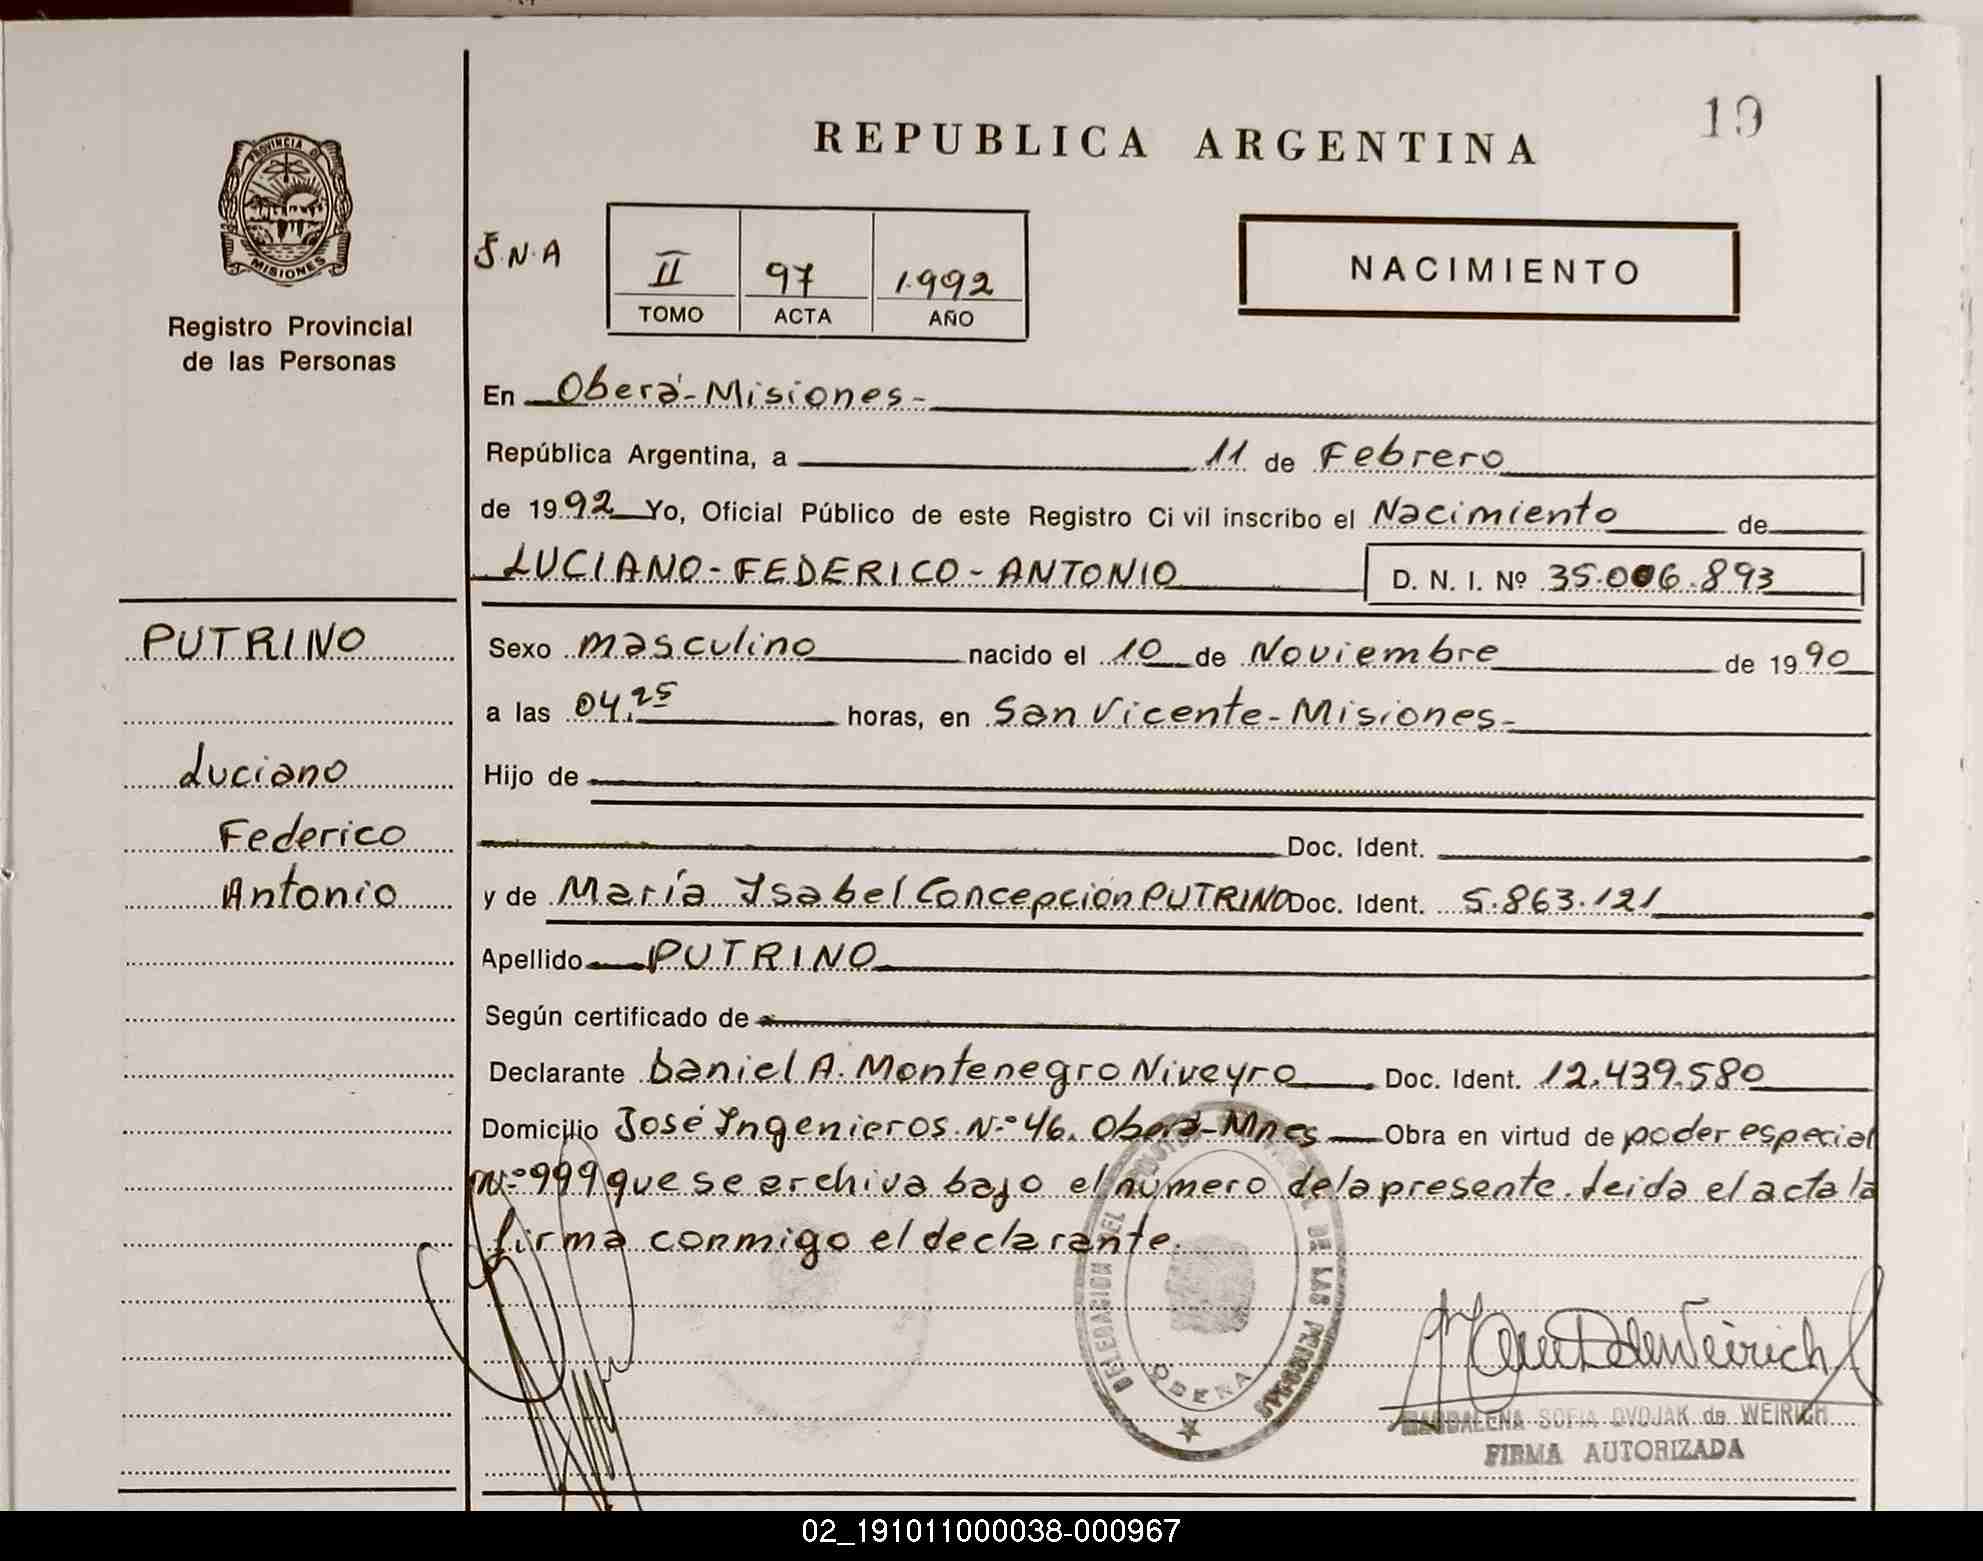 19
REPUBLICA ARGENTINA
PROVINCIA DE
MISIONES
Registro Provincial
de las Personas
J.N.A
II 97 1.992
TOMO ACTA AÑO
NACIMIENTO
En Oberá-Misiones-
República Argentina, a 11 de Febrero
de 1992 Yo, Oficial Público de este Registro Ci vil inscribo el Nacimiento de
LUCIANO-FEDERICO-ANTONIO D. N. I. Nº 35.006.893
PUTRINO
Luciano
Federico
Antonio
Sexo masculino nacido el 10 de Noviembre de 1990
a las 04,25 horas, en San Vicente-Misiones-
Hijo de
Doc. Ident.
y de María Ysabel Concepción PUTRINO Doc. Ident. 5.863.121
Apellido PUTRINO
Según certificado de
Declarante Daniel A. Montenegro Niveyro Doc. Ident. 12.439.580
Domicilio José Yngenieros N.º 46. Oberá-Mnes Obra en virtud de poder especial
N.º 999 que se archiva bajo el número de la presente. Leida el acta la
firma conmigo el declarante.
DELEGACION DEL DE LAS PERSONAS
OBERA
MAGDALENA SOFIA DVOJAK de WEIRICH
FIRMA AUTORIZADA
02_191011000038-000967